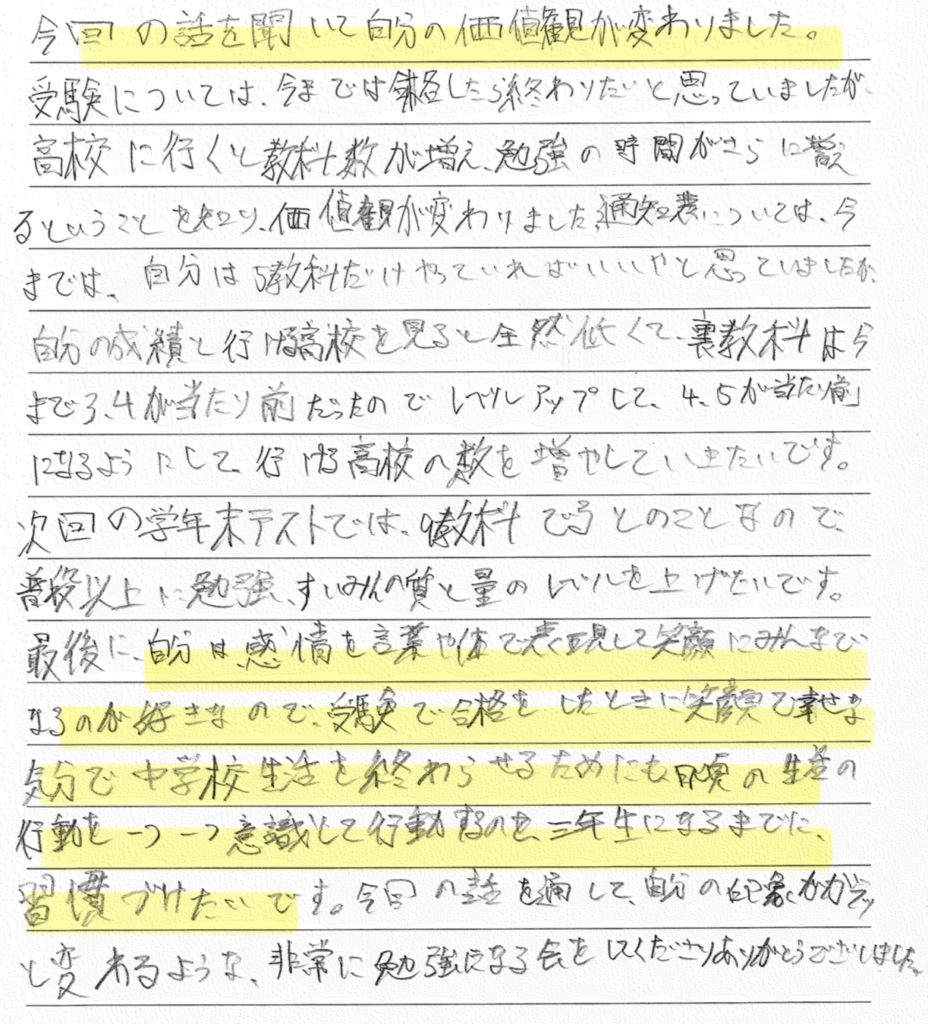 今回の話を聞いて自分の価値観が変わりました。
受験については、今までは合格したら終わりたいと思っていましたが、
高校に行くと教科数が増え、勉強の時間がさらに増え
るということを知り、価値観が変わりました。通知表については、今
までは、自分は5教科だけやっていればいいやと思っていましたが、
自分の成績と行ける高校を見ると全然低くて、裏教科は今
まで3、4が当たり前だったのでレベルアップして、4、5が当たり前
になるようにして、行ける高校の数を増やしていきたいです。
次回の学年末テストでは、9教科でるとのことなので、
普段以上に勉強、すいみんの質と量のレベルを上げたいです。
最後に、自分は、感情を言葉や体で表現して笑顔にみんなで
なるのが好きなので、受験で合格をしたときに笑顔で幸せな
気分で中学校生活を終わらせるためにも日頃の生活の
行動を一つ一つ意識して行動するのを、三年生になるまでに、
習慣づけたいです。今回の話を通して、自分の印象がガラッ
と変わるような、非常に勉強になる会をしてくださりありがとうございました。